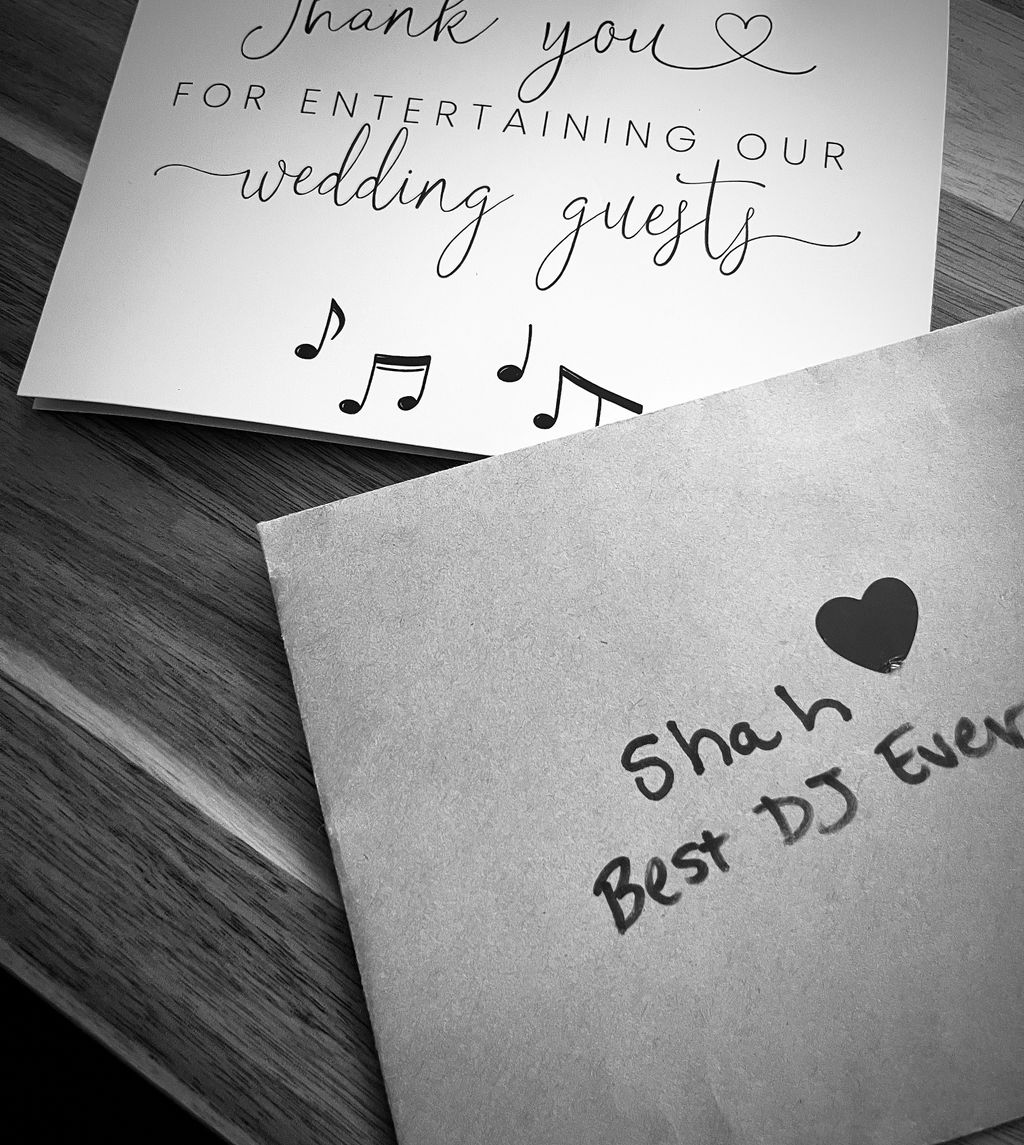 Thank you
FOR ENTERTAINING OUR
wedding guests
Shah
Best DJ Ever